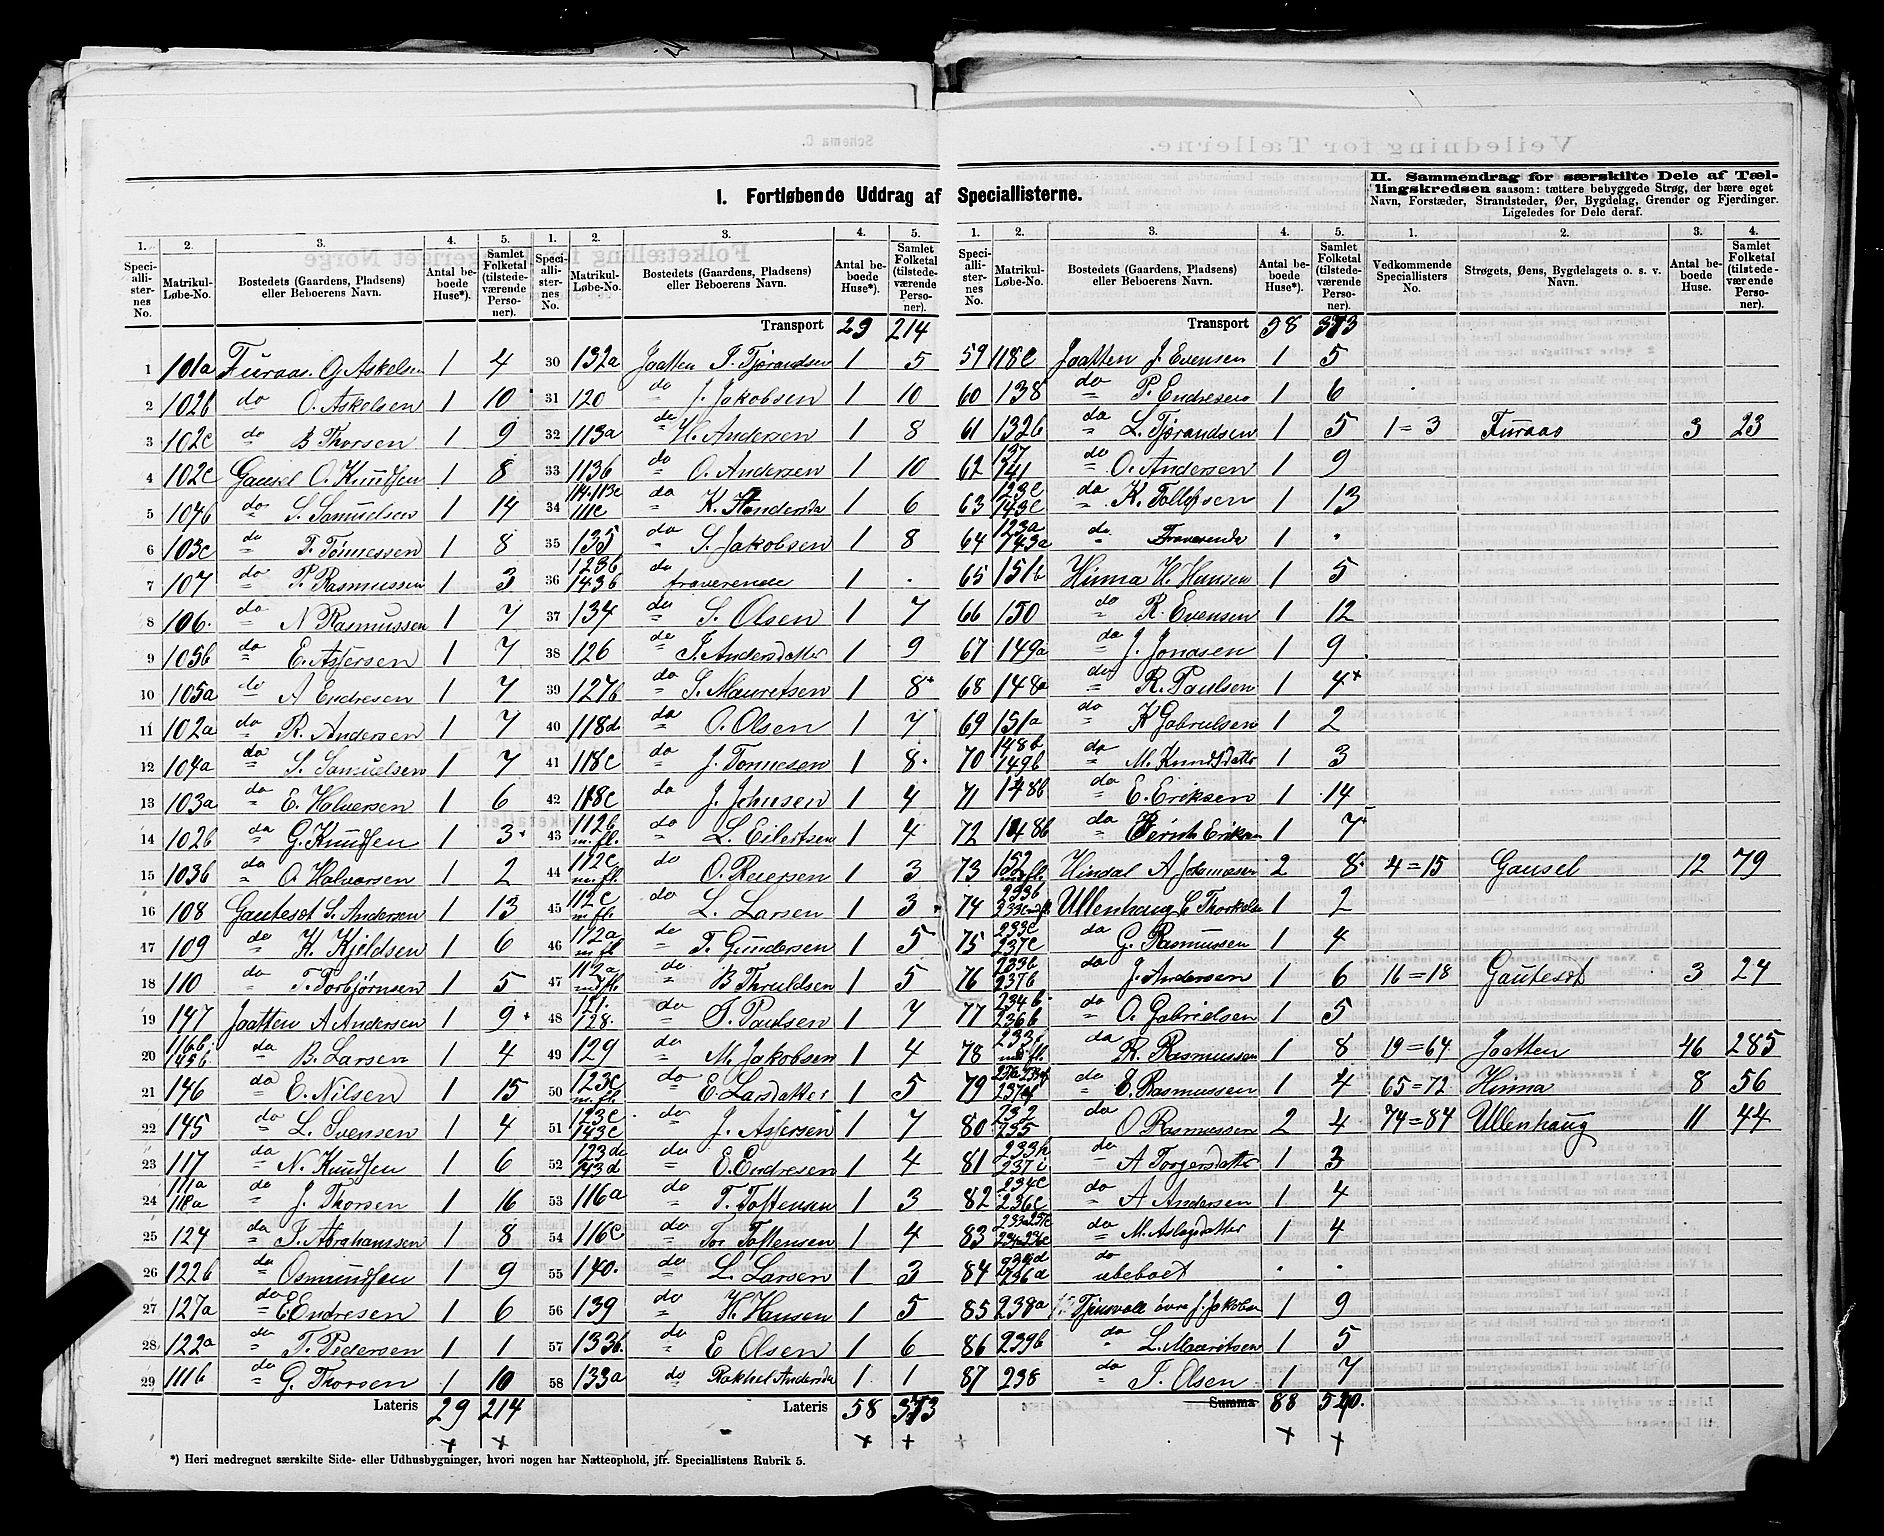 Schema C.
Veiledning for Tællerne.
I. Fortløbende Uddrag af Speciallisterne.
II. Sammendrag for særskilte Dele af Tællingskredsen saasom: tættere bebyggede Strøg, der bære eget
Navn, Forstæder, Strandsteder, Øer, Bygdelag, Grender og Fjerdinger.
Ligeledes for Dele deraf.
1. 2. 3. 4. 5.
Speciallisternes No. Matrikul-Løbe-No. Bostedets (Gaardens, Pladsens) eller Beboerens Navn. Antal beboede Huse*). Samlet Folketal (tilstedeværende Personer).
1 101a Furaas O. Askelsen 1 4
2 102b do O. Askelsen 1 10
3 102c do B Thorsen 1 9
4 102c Gausel O. Knudsen 1 8
5 104b do S. Samuelsen 1 14
6 103c do T. Tönnessen 1 8
7 107 do P. Rasmussen 1 3
8 106. do N Rasmussen 1 7
9 105b do E. Asersen 1 7
10 105a do A Endresen 1 7
11 102a do R. Andersen 1 7
12 104a do S. Samuelsen 1 7
13 103a do E. Halversen 1 6
14 102b do G. Knudsen 1 3
15 103b do O Halvorsen 1 2
16 108 Gautesdt S. Andersen 1 13
17 109 do K. Kjeldsen 1 6
18 110 do T. Torbjörnsen 1 5
19 147 Jaatten A Andersen 1 9
20 116b. 145b do B. Larsen 1 4
21 146 do E. Nilsen 1 15
22 145 do L. Svensen 1 4
23 117 do N. Knudsen 1 6
24 111a 118a do J. Thorsen 1 16
25 124 do T. Abrahamsen 1 8
26 122b do Osmundsen 1 9
27 127a do E. Endresen 1 6
28 122a do T. Pedersen 1 1
29 111b do G. Thorsen 1 10
Lateris 29 214
1. 2. 3. 4. 5.
Speciallisternes No. Matrikul-Løbe-No. Bostedets (Gaardens, Pladsens) eller Beboerens Navn. Antal beboede Huse*). Samlet Folketal (tilstedeværende Personer).
Transport 29 214
30 132a Jaatten T. Tjörandsen 1 5
31 120 do J. Jakobsen 1 10
32 113a do H. Andersen 1 8
33 113b do O. Andersen 1 10
34 114.113c 111c do K. 1 6
35 135 do S. Jakobsen 1 8
36 123b 143b do fraverende 1 .
37 134 do S. Olsen 1 7
38 126 do T. Andersdatter 1 9
39 127b do S. Mauretsen 1 8
40 118d. do O. Olsen 1 7
41 118c do J. Tonnesen 1 8
42 118c do J. Johnsen 1 4
43 112b m. fl. do L. Eilertsen 1 4
44 112c m. fl. do O. Reiersen 1 3
45 112c m. fl. do L. Larsen 1 3
46 112a m. fl. do T. Gundersen 1 5
47 112a m. fl. do B Thruldsen 1 5
48 121. 128. do S. Paulsen 1 7
49 129 do M. Jakobsen 1 4
50 123c m. fl. do E. Larsdatter 1 5
51 123c. 143c do J. Asersen 1 7
52 123d 143d do E. Endresen 1 4
53 116a do T. Toftensen 1 3
54 116c do Tor Toftensen 1 4
55 140. do L. Larsen 1 3
56 139 do H. Hansen 1 5
57 133b. do E Olsen 1 6
58 133a do Rakhel Andersda 1 1
Lateris 58 373
1. 2. 3. 4. 5.
Speciallisternes No. Matrikul-Løbe-No. Bostedets (Gaardens, Pladsens) eller Beboerens Navn. Antal beboede Huse*). Samlet Folketal (tilstedeværende Personer).
Transport 58 373
59 118c Jaatten J. Evensen 1 5
60 138 do P. Endresen 1 6
61 132b do L. Tjörandsen 1 5
62 137 141 do O. Andersen 1 9
63 123c 143c do K. Tollefsen 1 13
64 123a 143a do Fraverende 1 .
65 151b Hinna H. Hansen 1 5
66 150 do R. Evensen 1 12
67 149a do J. Jonasen 1 9
68 148a do R. Paulsen 1 4
69 151a do K Gabrielsen 1 2
70 148b 149b do M. Knudsdatter 1 3
71 148b do E. Eriksen 1 14
72 148b do Eriksen 1 7
73 152 m. fl. Hindal A Johannesen 2 8
74 233b Ullenhaug C Thorkelsen 1 2
75 233c 237c do G. Rasmussen 1 4
76 233b 237b do J. Andersen 1 6
77 234b. 236b do O. Gabrielsen 1 5
78 233f m. fl. do R. Rasmussen 1 8
79 do E. Rasmussen 1 4
80 232 235 do O Rasmussen 2 4
81 233h 237i do A Torgersdatter 1 3
82 234c 236c do A Andersen 1 4
83 do M. Aslagsdatter 1 4
84 234d 236a do ubeboet . .
85 238a Tjensvold övre J. Jakobsen 1 9
86 239b do L. Mauritsen 1 5
87 238 do T. Olsen 1 7
Summa 88
1. 2. 3. 4.
Vedkommende Speciallisters No. Strøgets, Øens, Bygdelagets o. s. v. Navn. Antal beboede Huse. Samlet Folketal (tilstedeværende Personer).
1=3 Furaas 3 23
4=15 Gausel 12 79
16=18 Gautesdt 3 24
19=64 Jaatten 46 285
65=72 Hinna 8 56
74=84 Ullenhaug 11 44
*) Heri medregnet særskilte Side- eller Udhusbygninger, hvori nogen har Natteophold, jfr. Speciallistens Rubrik 5.